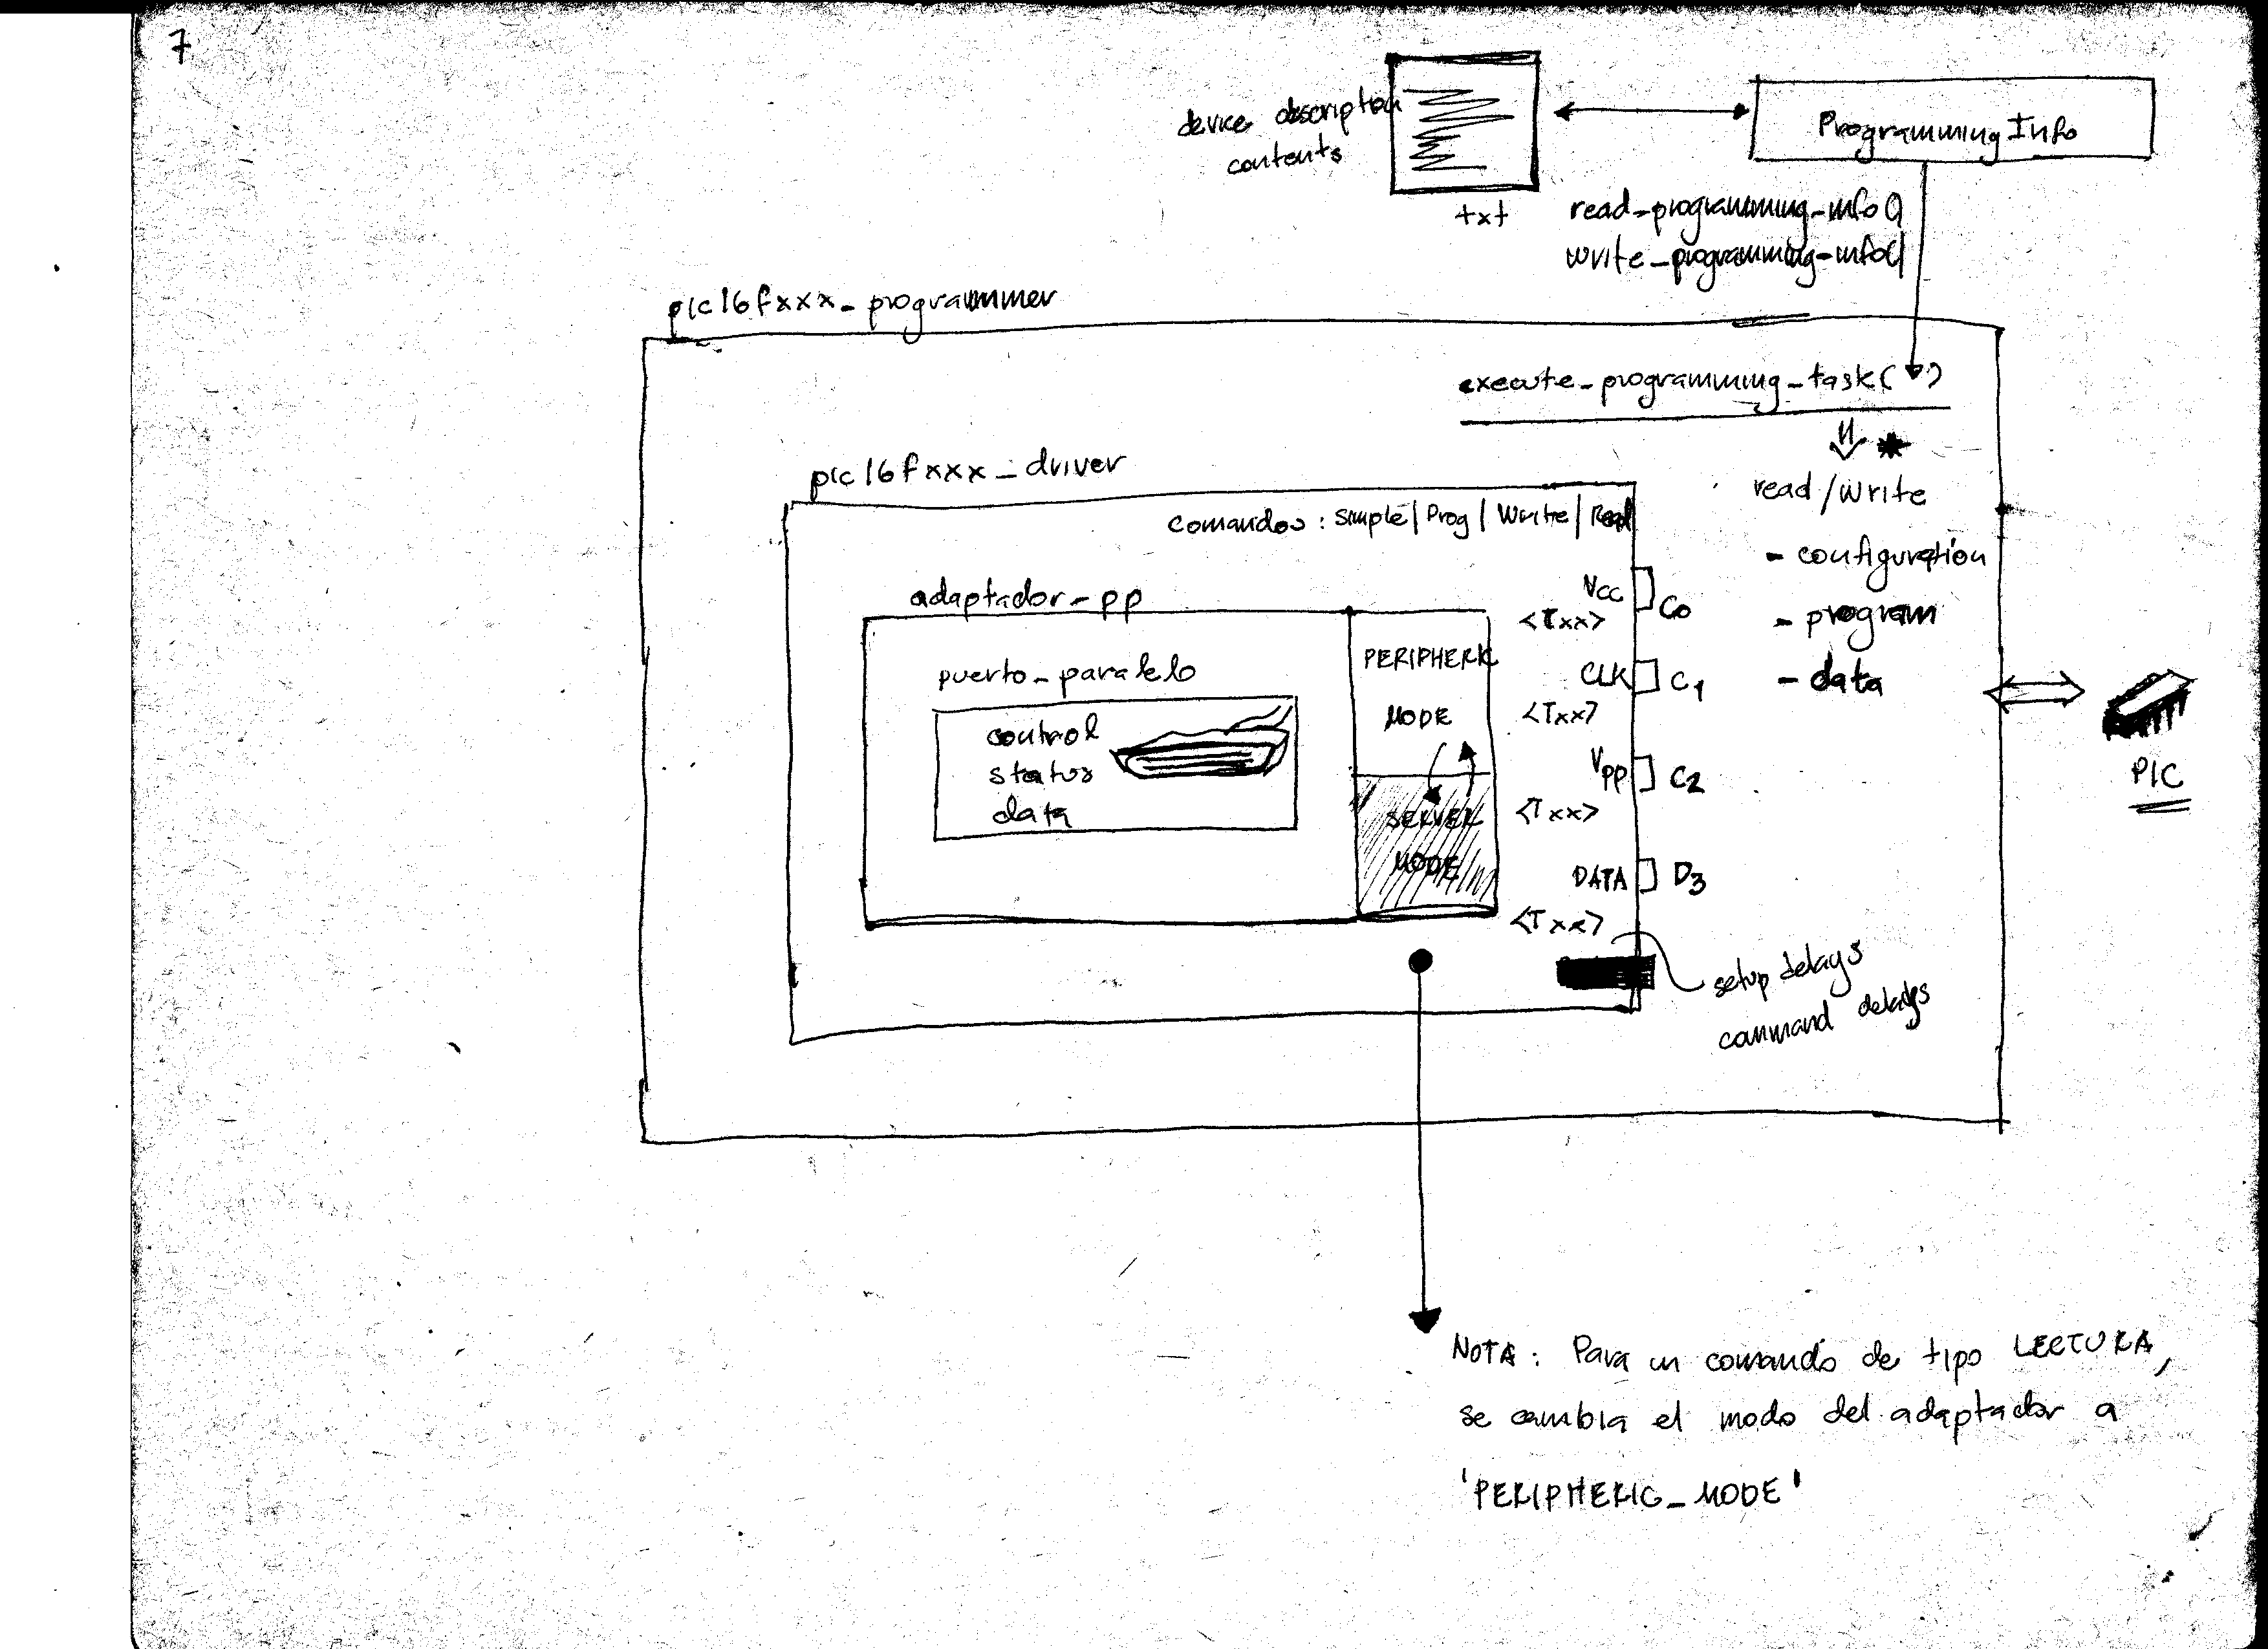 7
device description
contents
txt
Programming Info
read_programming_info()
write_programming_info()
pic16fxxx_programmer
execute_programming_task( )
pic16fxxx_driver
read/write
- configuration
- program
- data
Comandos : Simple | Prog | Write | Read
adaptador_pp
puerto_paralelo
control
status
data
PERIPHERIC
MODE
SERVER
MODE
Vcc
C0
<Txx>
CLK
C1
<Txx>
Vpp
C2
<Txx>
DATA
D3
<Txx>
setup delays
command delays
PIC
NOTA : Para un comando de tipo LECTURA,
se cambia el modo del adaptador a
'PERIPHERIC_MODE'